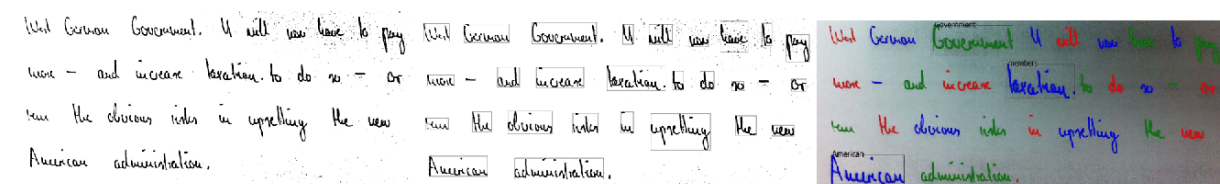 West German Government. It will now have to pay
more - and increase taxation. to do so - or
run the obvious risks in upsetting the new
American administration.
West German Government. It will now have to pay
more - and increase taxation. to do so - or
run the obvious risks in upsetting the new
American administration.
Government
West German Government It will now have to pay
members
more - and increase taxation. to do so - or
run the obvious risks in upsetting the new
American
American administration.